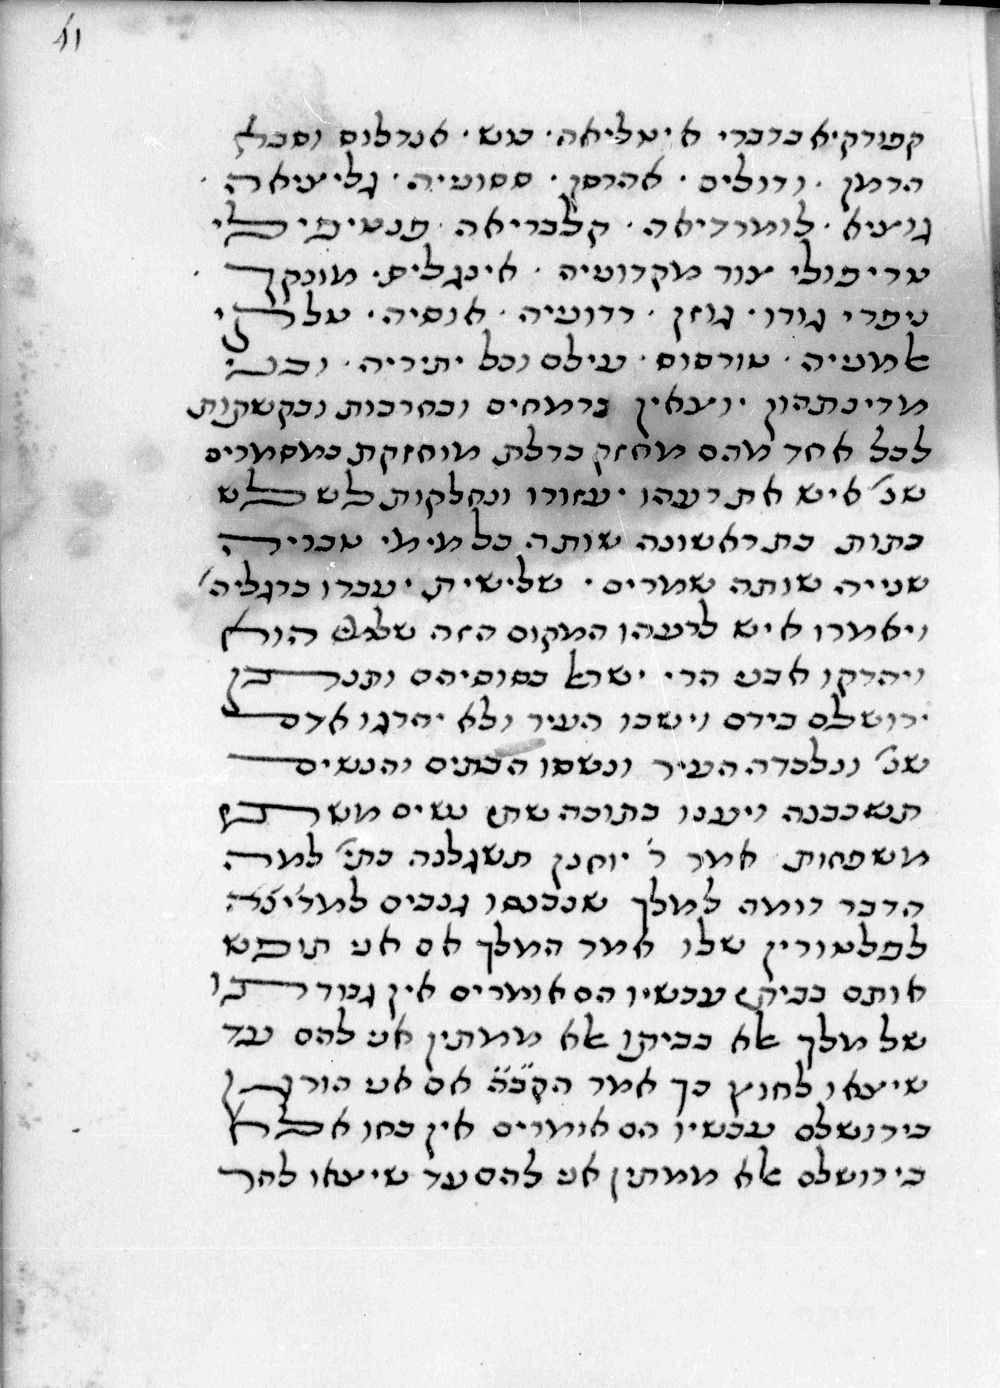 41
קפודקיא ברברי איטליאה · כוש · אנדלוס וסבא
הרמן · ודולים · אהרסן · ססוניה · גליציאה ·
גוציא · לומרדיאה · קלבריאה · פנטיפולי
טריפולי צור מקדוניה · אינגליס · מונקך ·
ניפרי גורו · גוזן · דדוניה · אוסיה · טלקי
אלמניה · טורסוס · עילם וכל יתיריה · ובני
מדינתהון יוצאין ברמחים ובחרבות ובקשקות
לכל אחד מהם מחזק ברלת מוחזקת במסמרים
שנ' איש את רעהו יעזורו ונחלקות לשלש
כתות כת ראשונה שותה כל מימי טבריה
שנייה שותה שמרים · שלישית יעברו ברגליה'
ויאמרו איש לרעהו המקום הזה שלמי הוא
ויהדקו אבני הרי ישראל בסוסיהם ותנתן
ירושלם בידם וישבו העיר ולא יהרגו אדם
שנ' ונלכדה העיר ונשסו הבתים והנשים
תשכבנה ויענו בתוכה שתי נשים משתי
משפחות אמר ר' יוחנן תשגלנה כתי' למה
הדבר דומה למלך שנכנסו גנבים למדינה
לפלטורין שלו אמר המלך אם אני תופש
אותם בביתי עכשיו הם אומרים אין גבורתו
של מלך אלא בביתו אלא ממתין אני להם עד
שיצאו לחוץ כך אמר הקב"ה אם אני הורגן
בירושלם עכשיו הם אומרים אין כחו אלא
בירושלם אלא ממתין אני להם עד שיצאו להר